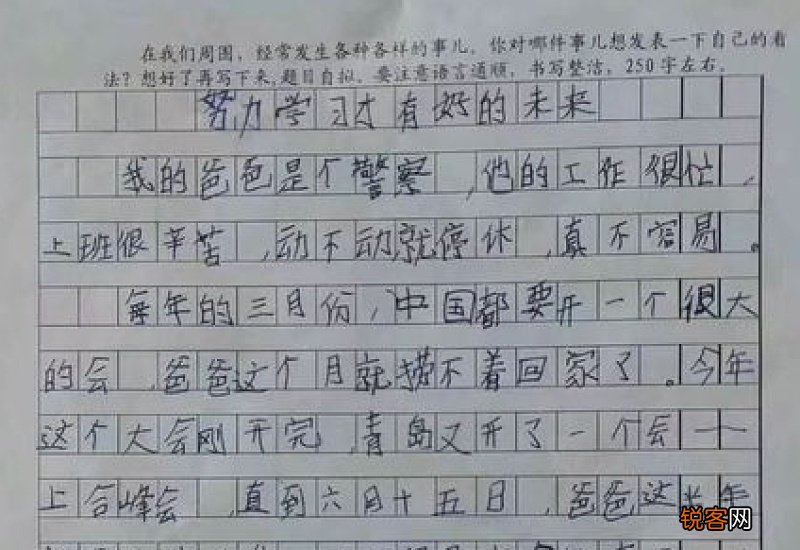 在我们周围，经常发生各种各样的事儿。你对哪件事儿想发表一下自己的看
法？想好了再写下来,题目自拟。要注意语言通顺，书写整洁，250字左右。
努力学习才有好的未来
我的爸爸是个警察，他的工作很忙，
上班很辛苦，动不动就停休，真不容易。
每年的三月份，中国都要开一个很大
的会，爸爸这个月就捞不着回家了。今年
这个大会刚开完，青岛又开了一个会——
上合峰会，直到六月十五日，爸爸这半年
锐客网